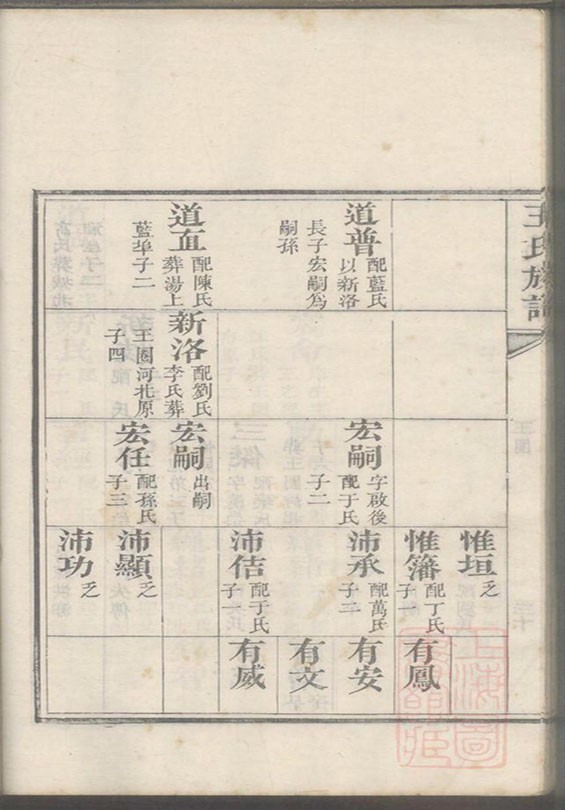 王氏族譜
王圈
惟垣 乏
惟籓 配丁氏
子一
有鳳
道普 配藍氏
以新洛
長子宏嗣為
嗣孫
宏嗣 字啟後
配于氏
子二
沛承 配萬氏
子二
有安
有文
沛佶 配于氏
子一
有威
道直 配陳氏
葬湯上
藍埠子二
新洛 配劉氏
李氏葬
王圈河北原
子四
宏嗣 出嗣
宏任 配孫氏
子三
沛顯 乏
沛功 乏
上海圖